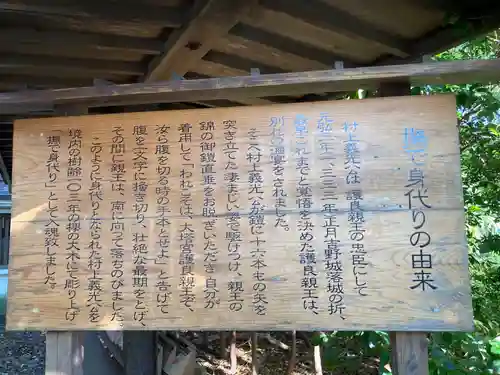 撫で身代りの由来
村上義光公は、護良親王の忠臣にして
元弘三年(一三三三)年正月吉野城落城の折、
最早これまでと覚悟を決めた護良親王は、
別仕の酒宴をされました。
そこへ村上義光公が鎧に十六本もの矢を
突き立てた凄まじい姿で駆けつけ、親王の
錦の御鎧直垂をお脱ぎいただき、自分が
着用して「われこそは、大塔宮護良親王ぞ、
汝ら腹を切る時の手本とせよ」と告げて
腹を十文字に掻き切り、壮絶な最期をとげ、
その間に親王は、南に向って落ちのびました。
このように身代りとなられた村上義光公を
境内の樹齢一〇三年の櫻の大木にて彫り上げ
撫で「身代り」として入魂致しました。